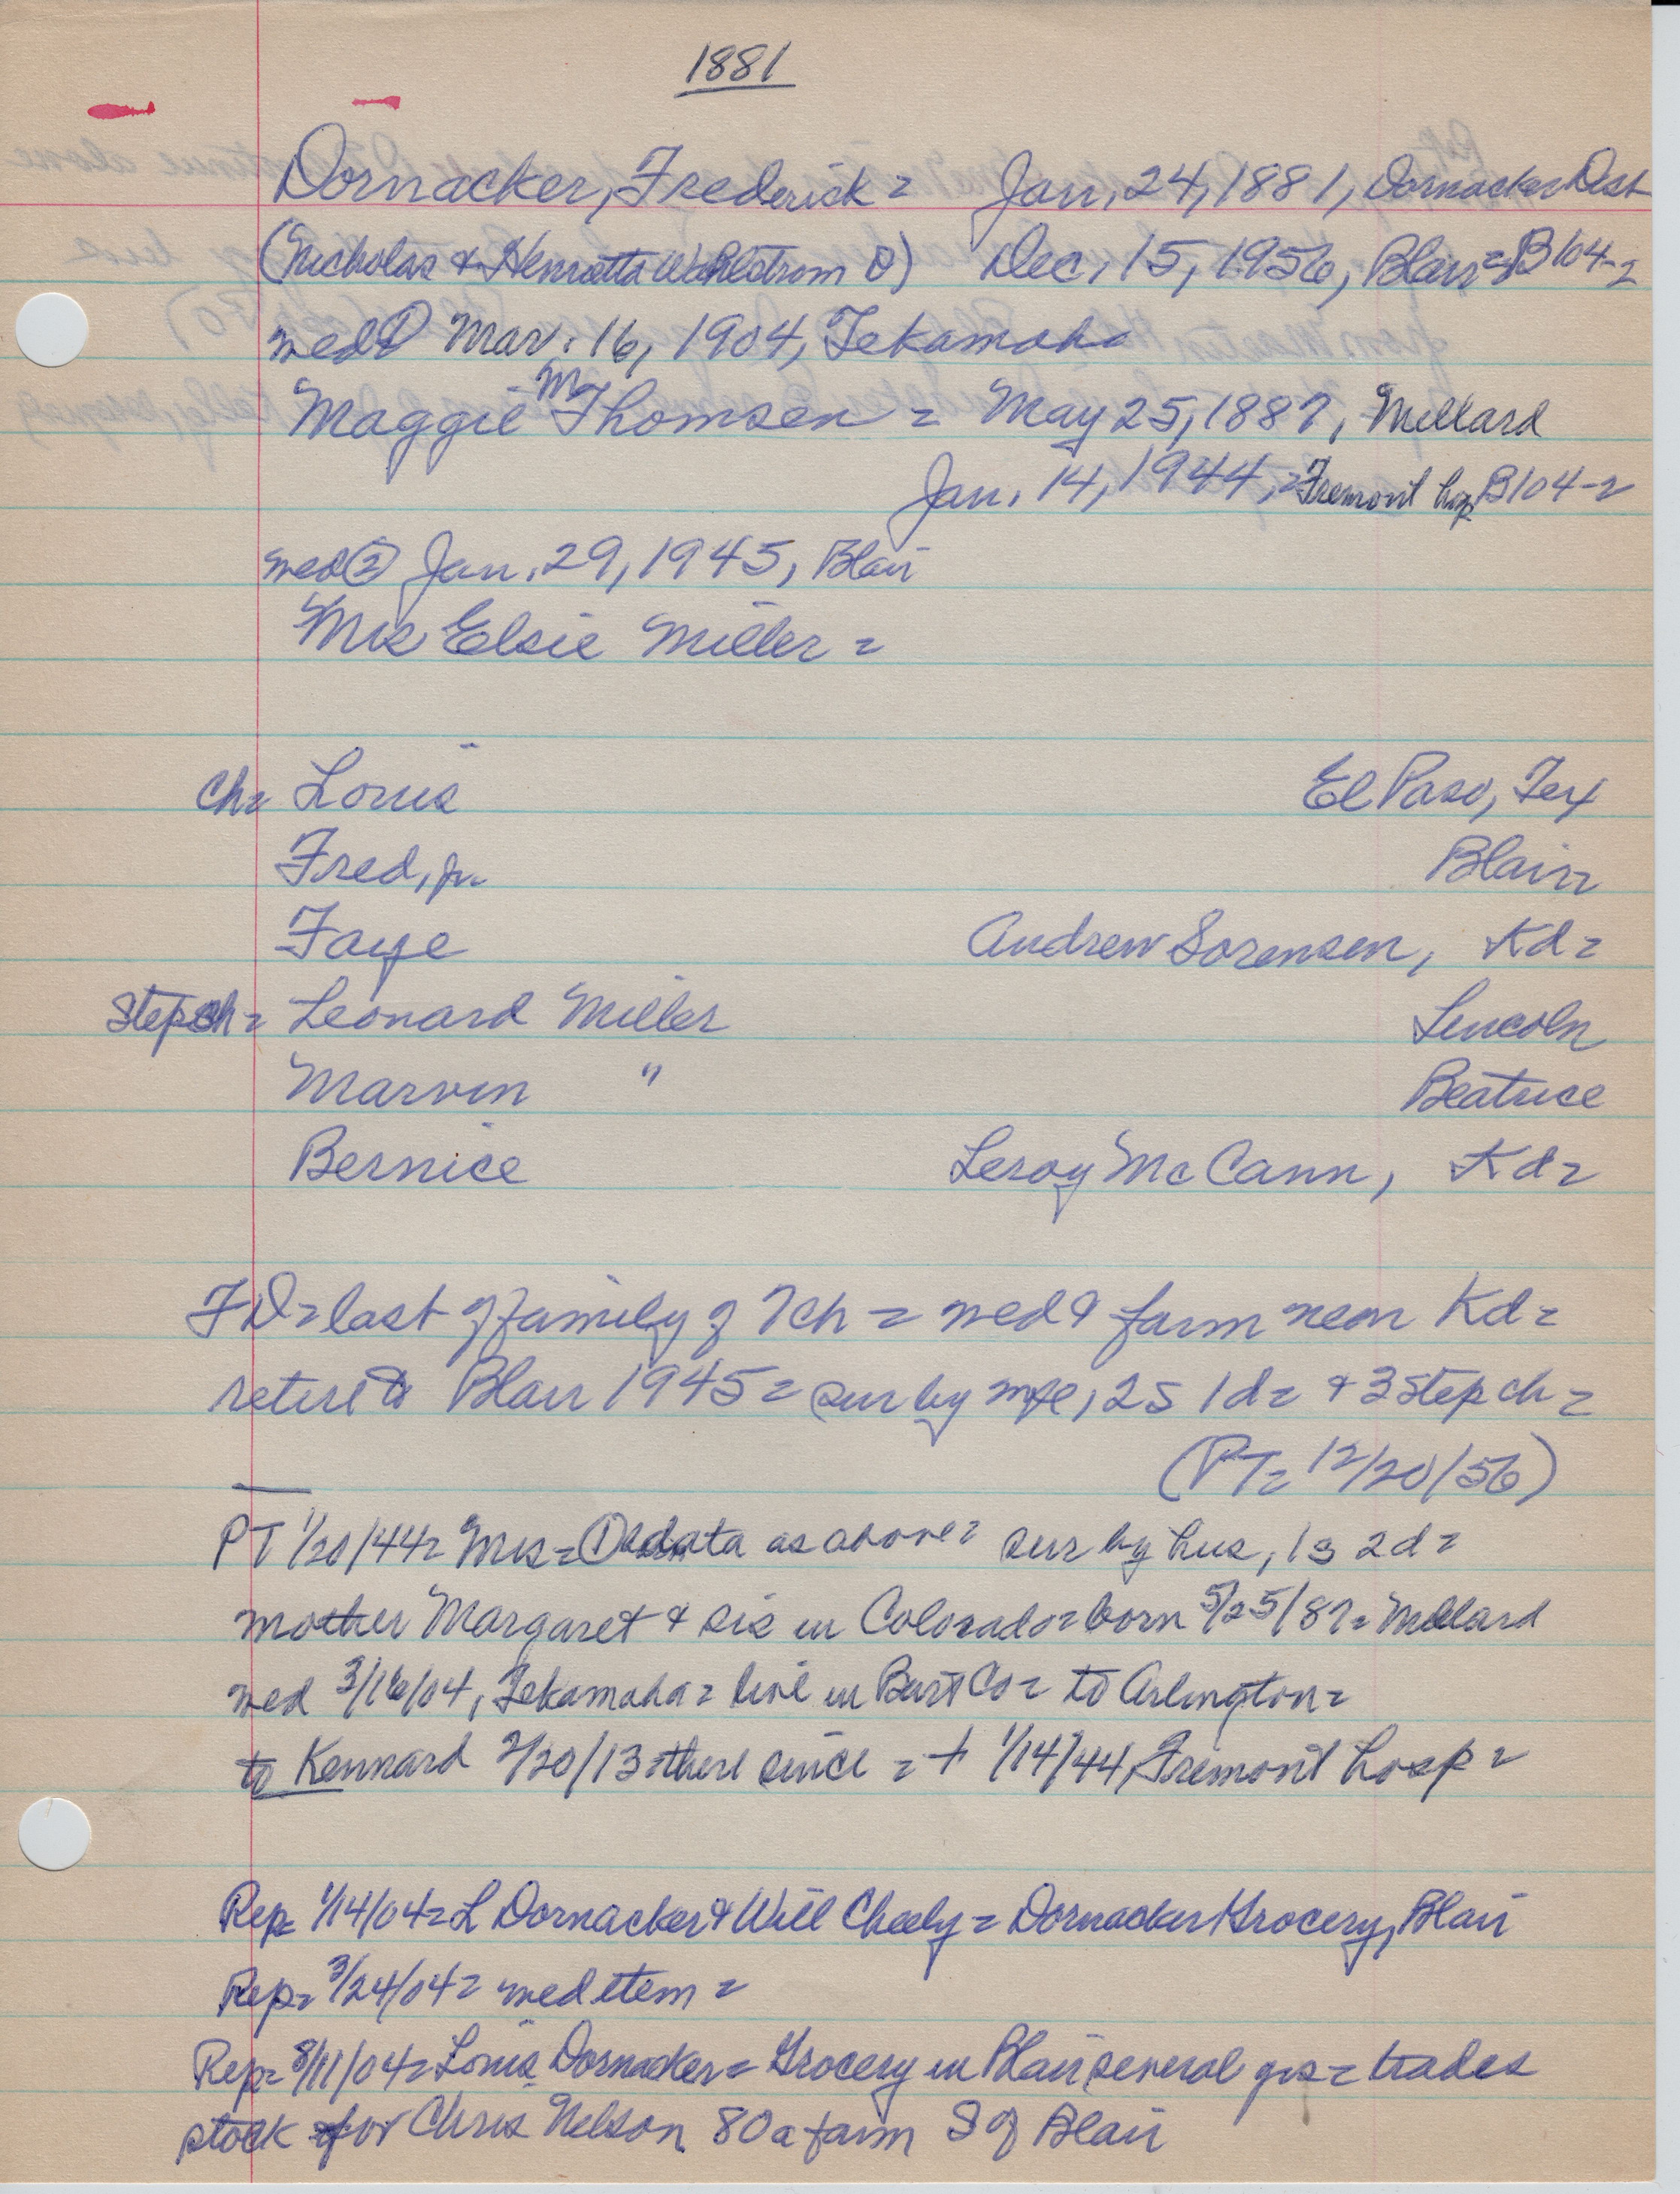 1881
Dornacker, Frederick = Jan. 24, 1881, Dornacker Dist
(Nicholas & Henrietta Wahlstrom D) Dec. 15, 1956, Blair = B104-2
wed ① Mar. 16, 1904, Tekamaha
Maggie M Thomsen = May 25, 1887, Millard
Jan. 14, 1944, = Fremont hosp B104-2
wed ② Jan. 29, 1945, Blair
Mrs Elsie Miller =
Ch= Louis El Paso, Tex
Fred, Jr. Blair=
Faye Andrew Sorensen, Kd=
Stepch= Leonard Miller Lincoln
Marvin " Beatrice
Bernice Leroy McCann, Kd=
FD=last of family of 7ch = wed & farm near Kd=
retire to Blair 1945= sur by wife, 2s 1d= & 3 step ch=
(PT= 12/20/56)
PT 1/20/44= Mrs=① data as above= sur by hus, 1s 2d=
mother Margaret & sis in Colorado=born 5/25/87= Millard
wed 3/16/04, Tekamaha= live in Burt Co= to Arlington=
to Kennard 2/20/13=there since = + 1/14/44, Fremont hosp=
Rep= 1/14/04= L Dornacker & Will Cheely = Dornacker Grocery, Blair
Rep= 3/24/04= wed item =
Rep= 8/11/04= Louis Dornacker= Grocery in Blair several yrs= trades
stock for Chris Nelson 80a farm S of Blair